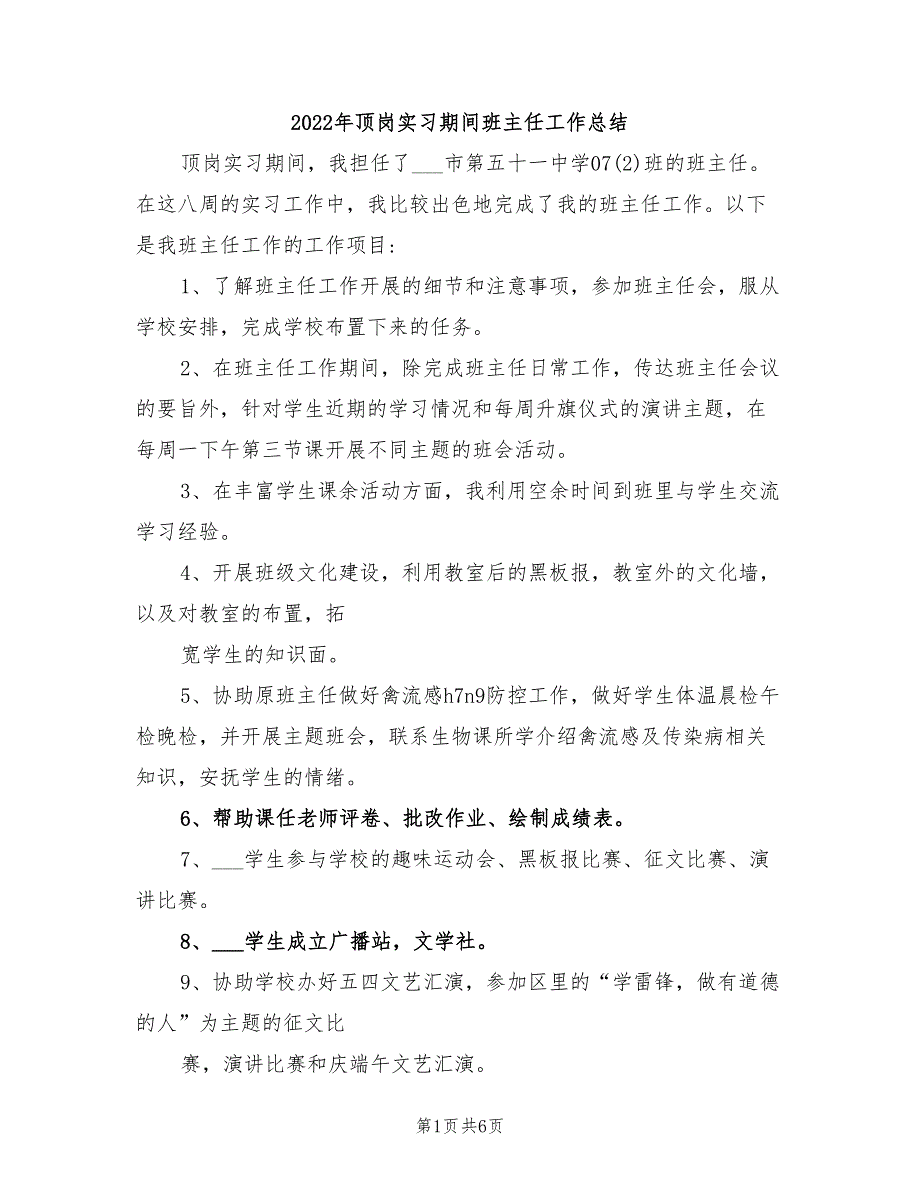 2022年顶岗实习期间班主任工作总结
顶岗实习期间，我担任了___市第五十一中学07(2)班的班主任。
在这八周的实习工作中，我比较出色地完成了我的班主任工作。以下
是我班主任工作的工作项目:
1、了解班主任工作开展的细节和注意事项，参加班主任会，服从
学校安排，完成学校布置下来的任务。
2、在班主任工作期间，除完成班主任日常工作，传达班主任会议
的要旨外，针对学生近期的学习情况和每周升旗仪式的演讲主题，在
每周一下午第三节课开展不同主题的班会活动。
3、在丰富学生课余活动方面，我利用空余时间到班里与学生交流
学习经验。
4、开展班级文化建设，利用教室后的黑板报，教室外的文化墙，
以及对教室的布置，拓
宽学生的知识面。
5、协助原班主任做好禽流感h7n9防控工作，做好学生体温晨检午
检晚检，并开展主题班会，联系生物课所学介绍禽流感及传染病相关
知识，安抚学生的情绪。
6、帮助课任老师评卷、批改作业、绘制成绩表。
7、___学生参与学校的趣味运动会、黑板报比赛、征文比赛、演
讲比赛。
8、___学生成立广播站，文学社。
9、协助学校办好五四文艺汇演，参加区里的“学雷锋，做有道德
的人”为主题的征文比
赛，演讲比赛和庆端午文艺汇演。
第1页共6页